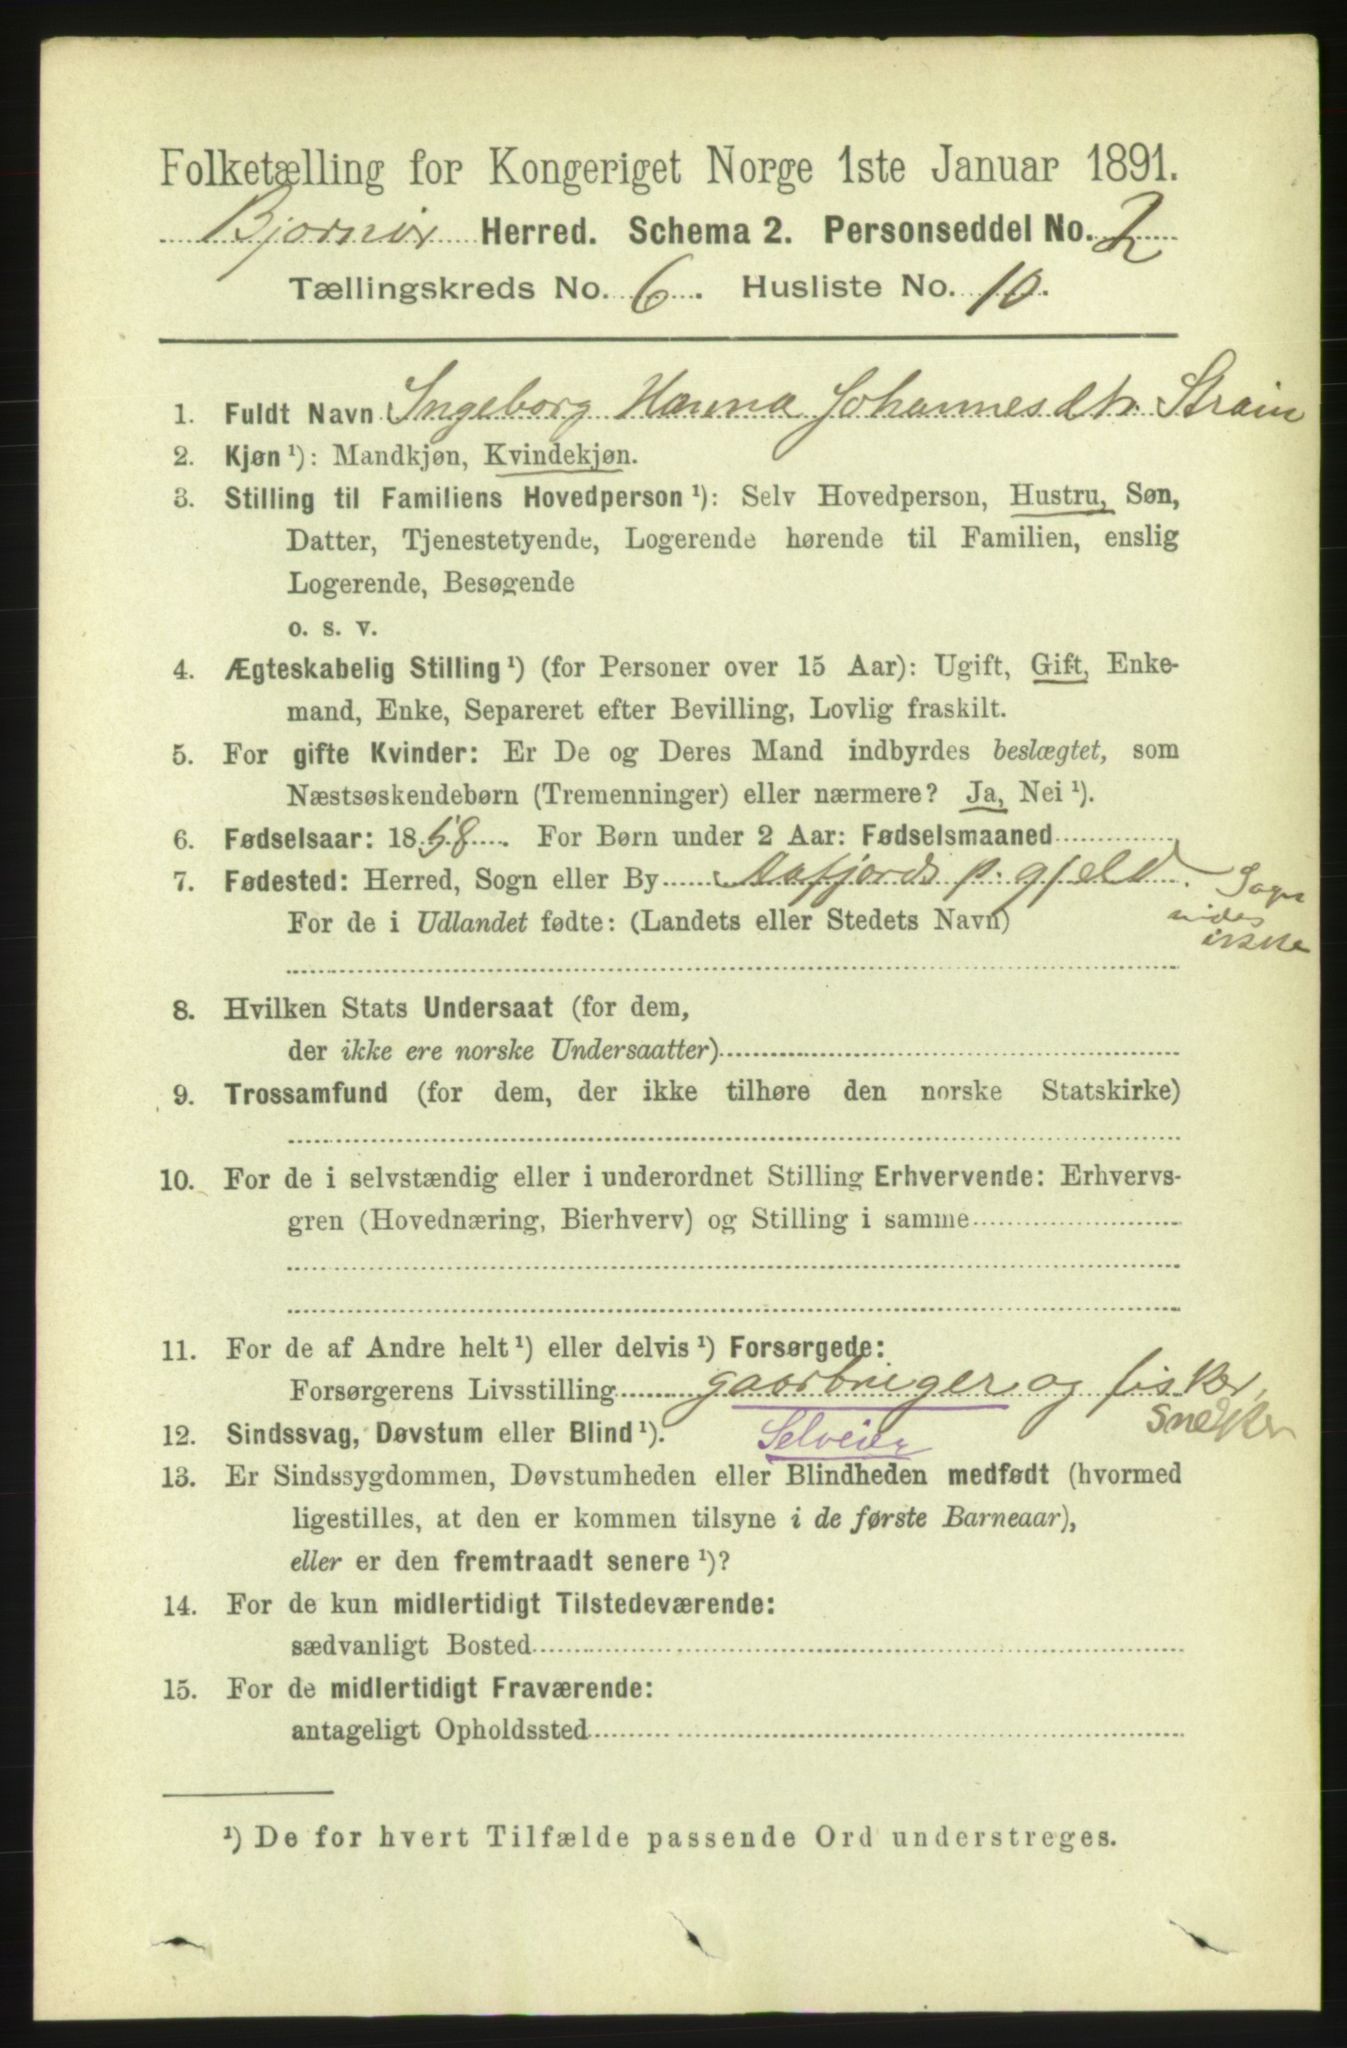 Folketælling for Kongeriget Norge 1ste Januar 1891.
Bjørnør Herred. Schema 2. Personseddel No. 2
Tællingskreds No. 6. Husliste No. 10.
1. Fuldt Navn Ingeborg Hanna Johannesdtr. Strain
2. Kjøn ¹): Mandkjøn, Kvindekjøn.
3. Stilling til Familiens Hovedperson ¹): Selv Hovedperson, Hustru, Søn,
Datter, Tjenestetyende, Logerende hørende til Familien, enslig
Logerende, Besøgende
o. s. v.
4. Ægteskabelig Stilling ¹) (for Personer over 15 Aar): Ugift, Gift, Enke-
mand, Enke, Separeret efter Bevilling, Lovlig fraskilt.
5. For gifte Kvinder: Er De og Deres Mand indbyrdes beslægtet, som
Næstsøskendebørn (Tremenninger) eller nærmere? Ja, Nei ¹).
6. Fødselsaar: 1858. For Børn under 2 Aar: Fødselsmaaned
7. Fødested: Herred, Sogn eller By Aafjords p. gjeld. Sogn
vides
ikke
For de i Udlandet fødte: (Landets eller Stedets Navn)
8. Hvilken Stats Undersaat (for dem,
der ikke ere norske Undersaatter)
9. Trossamfund (for dem, der ikke tilhøre den norske Statskirke)
10. For de i selvstændig eller i underordnet Stilling Erhvervende: Erhvervs-
gren (Hovednæring, Bierhverv) og Stilling i samme
11. For de af Andre helt ¹) eller delvis ¹) Forsørgede:
Forsørgerens Livsstilling gaarbruger og fisker,
Snekker
12. Sindssvag, Døvstum eller Blind ¹). Selveier
13. Er Sindssygdommen, Døvstumheden eller Blindheden medfødt (hvormed
ligestilles, at den er kommen tilsyne i de første Barneaar),
eller er den fremtraadt senere ¹)?
14. For de kun midlertidigt Tilstedeværende:
sædvanligt Bosted
15. For de midlertidigt Fraværende:
antageligt Opholdssted
¹) De for hvert Tilfælde passende Ord understreges.